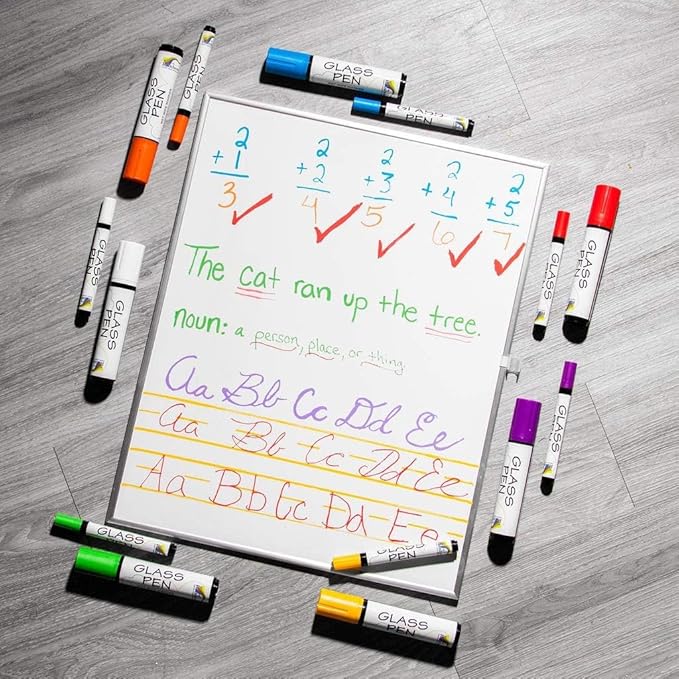 GLASS PEN
GLASS PEN
GLASS PEN
GLASS PEN
2 2 2 2 2
+ 1 + 2 + 3 + 4 + 5
3 4 5 6 7
The cat ran up the tree.
noun: a person, place, or thing.
Aa Bb Cc Dd Ee
Aa Bb Cc Dd Ee
Aa Bb Cc Dd Ee
GLASS PEN
GLASS PEN
GLASS PEN
GLASS PEN
GLASS PEN
GLASS PEN
GLASS PEN
GLASS PEN
GLASS PEN
GLASS PEN